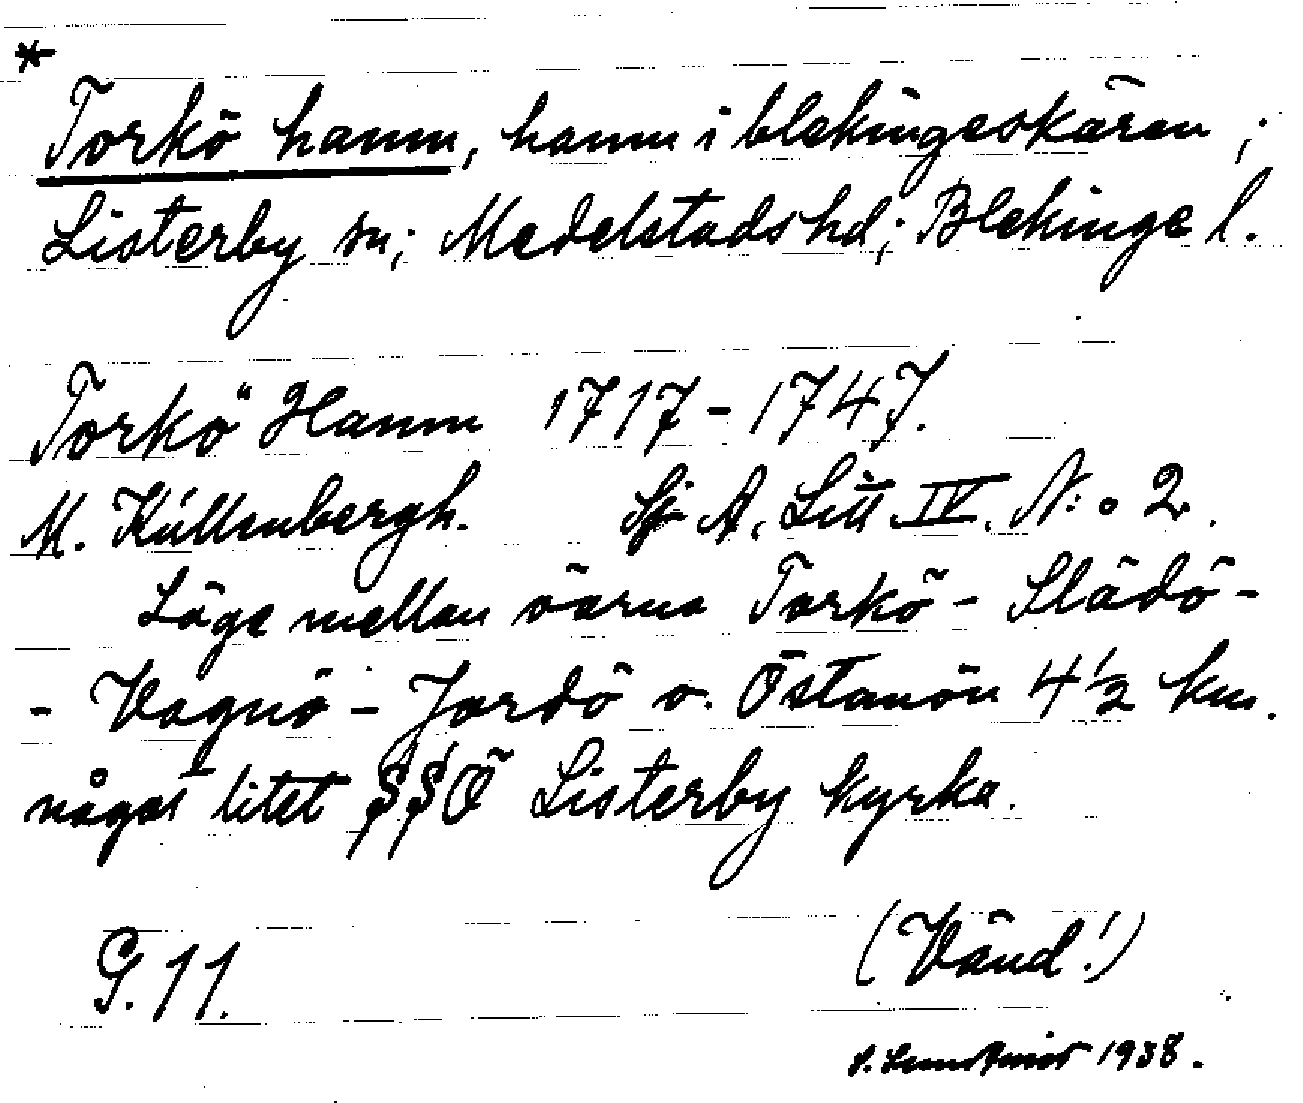 *
Torkö hamn, hamn i blekingeskären;
Listerby sn; Medelstads hd; Blekinge l.
Torkö Hamn 1717-1747.
M. Küllenbergh. Sj A. Litt IV. N:o 2.
Läge mellan öarna Torkö - Slädö -
- Vagnö - Jordö o. Östanön 4½ km.
något litet SSÖ Listerby kyrka.
G. 11. (Vänd!)
1938.